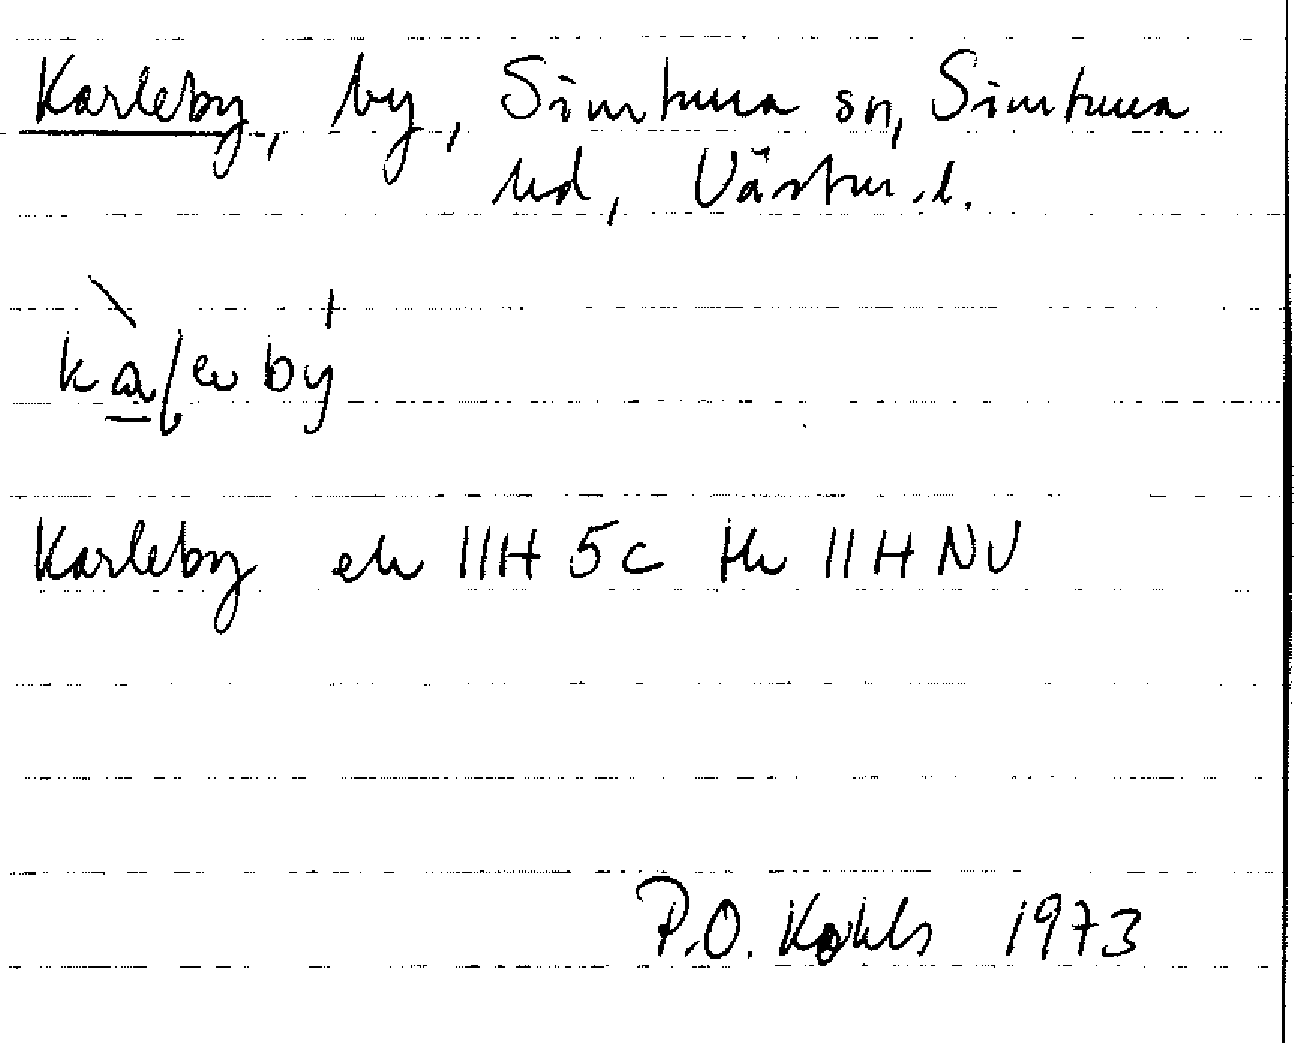 Karleby, by, Simtuna sn, Simtuna
hd, Västm.l.
Karleby ek 11H 5c tk 11H NV
P.O. 1973